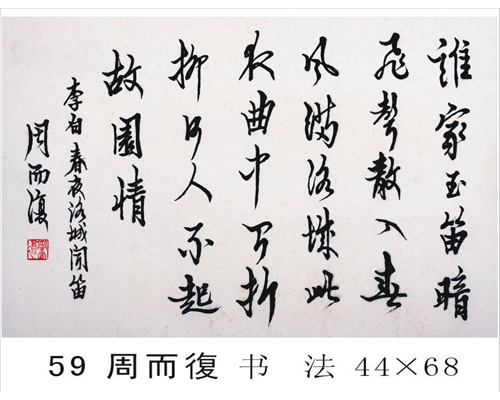 誰家玉笛暗
飛聲散入春
風滿洛城此
夜曲中聞折
柳何人不起
故園情
李白春夜洛城聞笛
周而復
59 周而復 书 法 44×68